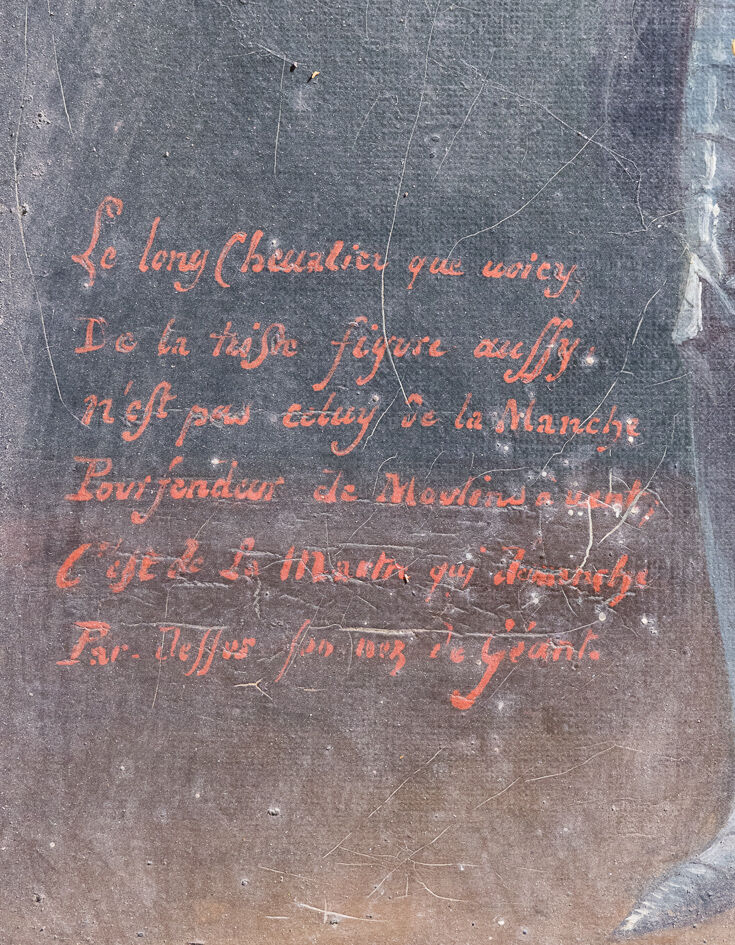 Le long Chevalier que voicy,
De la triste figure aussy,
n'est pas celuy de la Manche
Pourfendeur de Moulins à vent,
C'est de La qui
Par-Dessus son nez de Géant.